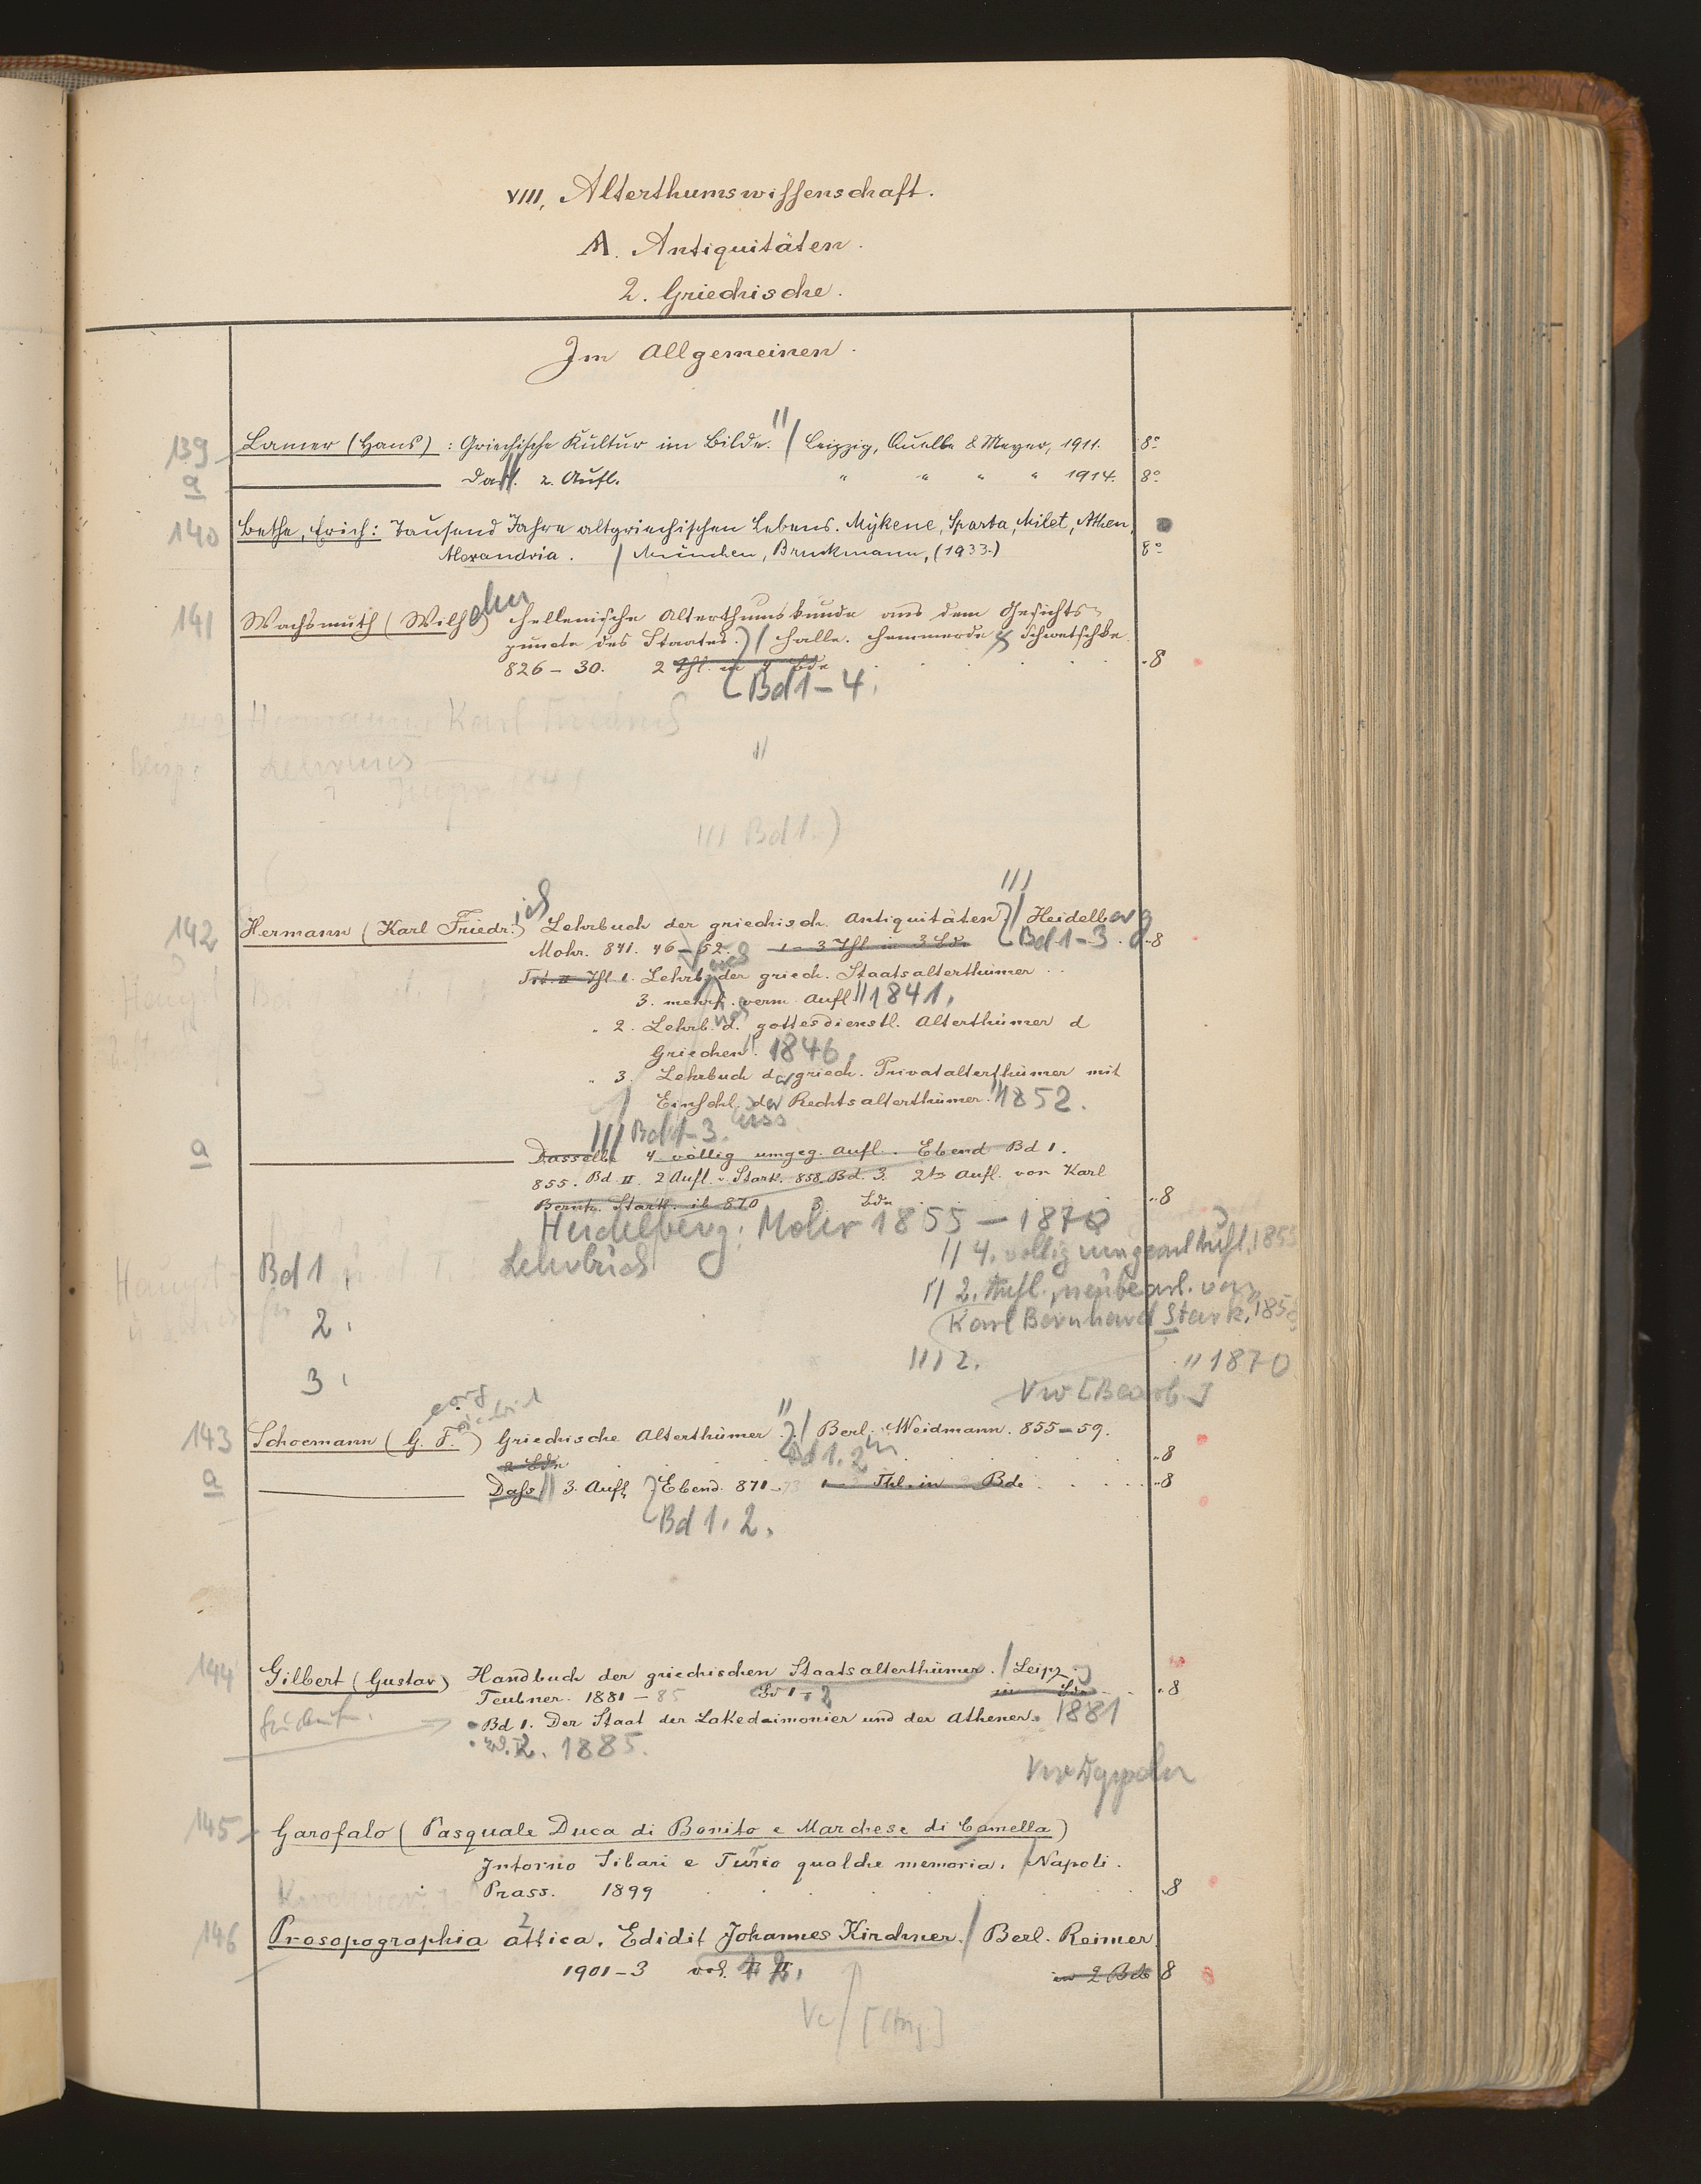 VIII, Alterthumswissenschaft.
A. Antiquitäten.
2. Griechische.
Im Allgemeinen.
139 Lamer (Hans): Griechische Kultur im Bilde. // / Leipzig, Quelle & Meyer, 1911. 8°
a Dass. 2. Aufl. " " " " 1914. 8°
140 Bethe, Erich: Tausend Jahre altgriechischen Lebens. Mykene, Sparta, Milet, Athen,
Alexandria. / München, Bruckmann, (1933.) 8°
141 Wachsmuth (Wilhelm) Hellenische Alterthumskunde aus dem Gesichts-
puncte des Staates.) / Halle. Hemmerde & Schwetschke.
826-30. 2 Thl. in 4 Bde 8
Bd 1-4.
Hermann, Karl Friedrich
Lehrbuch
1841
/// Bd 1.)
142 Hermann (Karl Friedr.) ich Lehrbuch der griechisch. Antiquitäten /// / Heidelberg
Mohr. 841. 46-52. 1-3 Thl in 3 Bde. Bd 1-3. 8
Tit. II Thl 1. Lehrb. der griech. Staatsalterthümer
3. mehrf. verm. Aufl // 1841.
" 2. Lehrb. d. gottesdienstl. Alterthümer d
Griechen. 1846.
" 3. Lehrbuch der griech. Privatalterthümer mit
Einschl. der Rechtsalterthümer. // 1852.
/// Bd 1-3.
a Dasselbe 4 völlig umgeg. Aufl. Ebend Bd 1.
855. Bd II. 2 Aufl. v. Stark. 858 Bd. 3. 2te Aufl. von Karl
Bernh. Stark. ib 870 3 Bde 8
Heidelberg: Mohr 1855-1870
Bd 1, Lehrbuch // 4. völlig umgearb Aufl. 1855
2. // 2. Aufl., neubearb. von
Karl Bernhard Stark, 1858
3. /// 2. " 1870
Vw [Bearb.]
143 Schoemann (G. F.) eorg riedrich Griechische Alterthümer // .) / Berl. Weidmann. 855-59.
2 Bde Bd 1. 2 8
a Dass // 3. Aufl. Ebend. 871-73 Thl. in Bde 8
Bd 1. 2.
144 Gilbert (Gustav) Handbuch der griechischen Staatsalterthümer. / Leipz.
Teubner. 1881-85 Bd 1. 2 in Bde 8
Bd 1. Der Staat der Lakedaimonier und der Athener. 1881
Bd. 2. 1885.
145 Garofalo (Pasquale Duca di Bonito e Marchese di Camella)
Intorno Sibari e Turio qualche memoria. / Napoli.
Prass. 1899 8
146 Prosopographia attica. Edidit Johannes Kirchner. / Berl. Reimer.
1901-3 vol. 1. 2. in 2 Bde 8